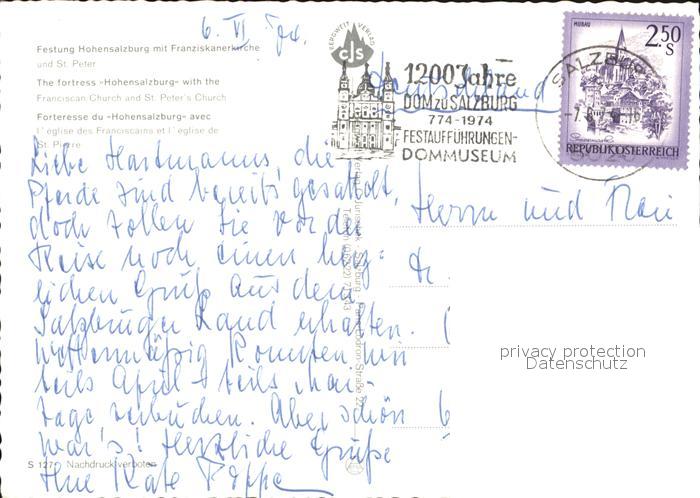 6. VI. 74.
Festung Hohensalzburg mit Franziskanerkirche
und St. Peter
The fortress »Hohensalzburg« with the
Franciscan Church and St. Peter's Church
Forteresse du »Hohensalzburg« avec
l'église des Franciscains et l'église de
St. Pierre
BERGWELT VERLAG
cjs
1200 Jahre
DOM ZU SALZBURG
774-1974
FESTAUFFÜHRUNGEN-
DOMMUSEUM
Deutschland
SALZBURG
MURAU
2.50
S
REPUBLIK ÖSTERREICH
Liebe Hartmanns, die
Pferde sind bereits gesattelt,
doch sollen Sie vor der
Reise noch einen herz-
lichen Gruß aus dem
Salzburger Land erhalten.
Wettermäßig konnten wir
teils April- teils Mai-
tage verbuchen. Aber schön
war's! Herzliche Grüße
Ihre Käte Poppe
Herrn und Frau
Dr.
privacy protection
Datenschutz
S 127 Nachdruck verboten